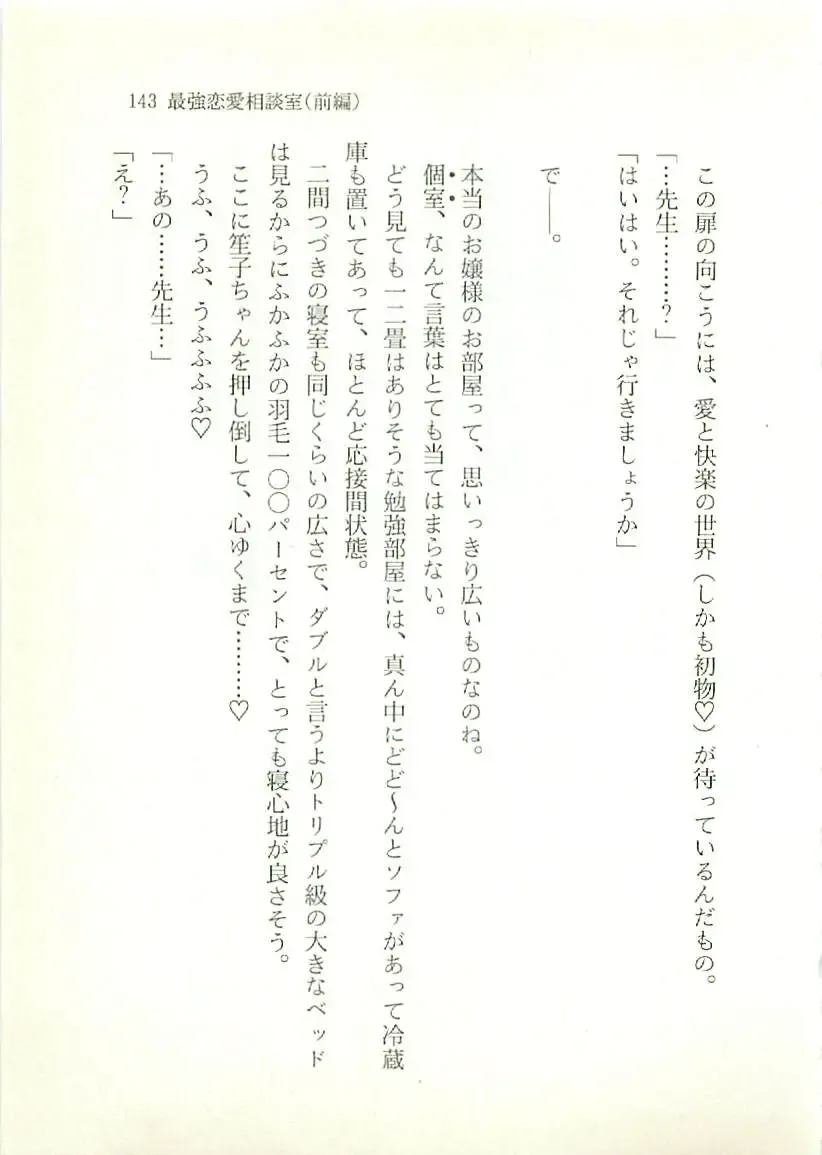 143 最強恋愛相談室(前編)
この扉の向こうには、愛と快楽の世界(しかも初物♡)が待っているんだもの。
「…先生………?」
「はいはい。それじゃ行きましょうか」
で――。
本当のお嬢様のお部屋って、思いっきり広いものなのね。
個室、なんて言葉はとても当てはまらない。
どう見ても一二畳はありそうな勉強部屋には、真ん中にどど〜んとソファがあって冷蔵
庫も置いてあって、ほとんど応接間状態。
二間つづきの寝室も同じくらいの広さで、ダブルと言うよりトリプル級の大きなベッド
は見るからにふかふかの羽毛一〇〇パーセントで、とっても寝心地が良さそう。
ここに笙子ちゃんを押し倒して、心ゆくまで…………♡
うふ、うふ、うふふふふ♡
「…あの……先生…」
「え?」